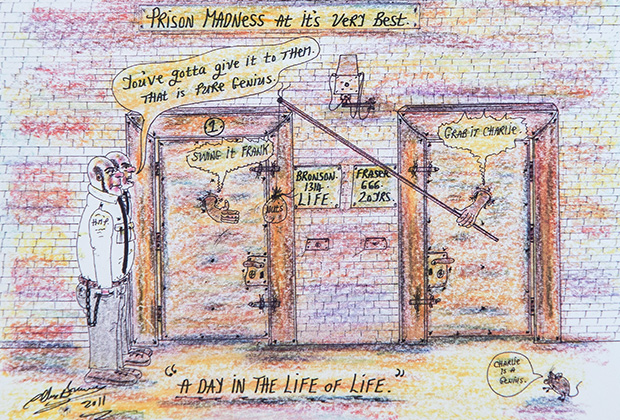 PRISON MADNESS AT IT'S VERY BEST.
YOU'VE GOTTA GIVE IT TO THEM.
THAT IS PURE GENIUS.
1
SWING IT FRANK
GRAB IT CHARLIE.
BRONSON.
1314.
LIFE.
FRASER
666.
20YRS.
HMP
"A DAY IN THE LIFE OF LIFE."
CHARLIE
IS A
GENIUS.
2011